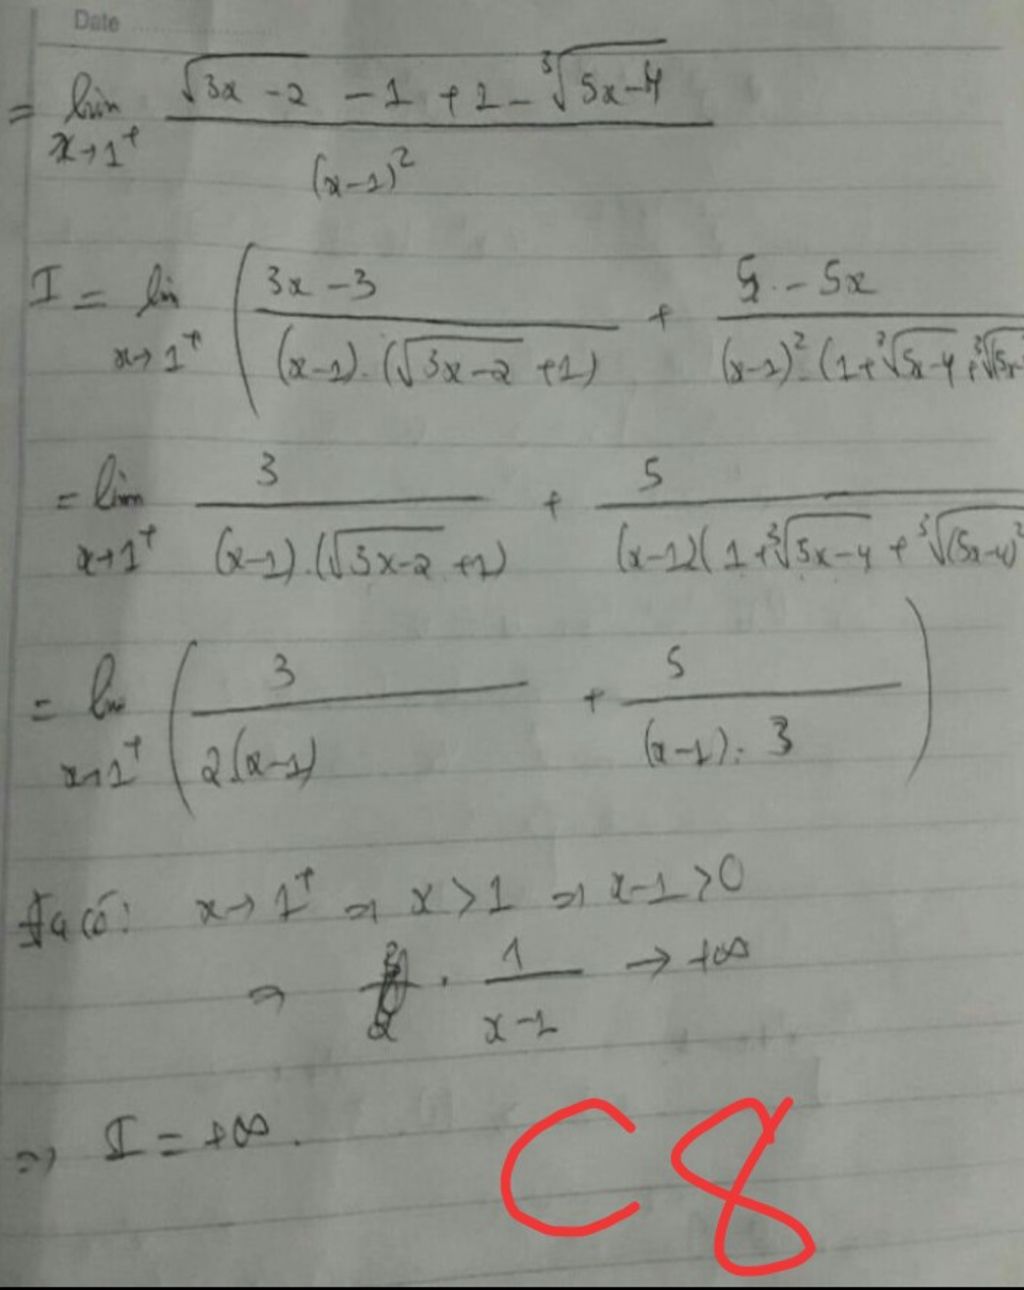 Date
= lim x→1⁺ (√(3x-2) - 1 + 1 - ³√(5x-4)) / (x-1)²
I = lim x→1⁺ ( (3x-3) / ((x-1).(√(3x-2) +1)) + (5-5x) / ((x-1)².(1+³√(5x-4)+³√(5x-
= lim x→1⁺ 3 / ((x-1).(√(3x-2) +1)) + 5 / ((x-1)(1+³√(5x-4) + ³√(5x-4)²
= lim x→1⁺ ( 3 / (2(x-1)) + 5 / ((x-1).3) )
Ta có: x→1⁺ ⇒ x>1 ⇒ x-1>0
⇒ . 1/(x-1) → +∞
⇒ I = +∞.
C8